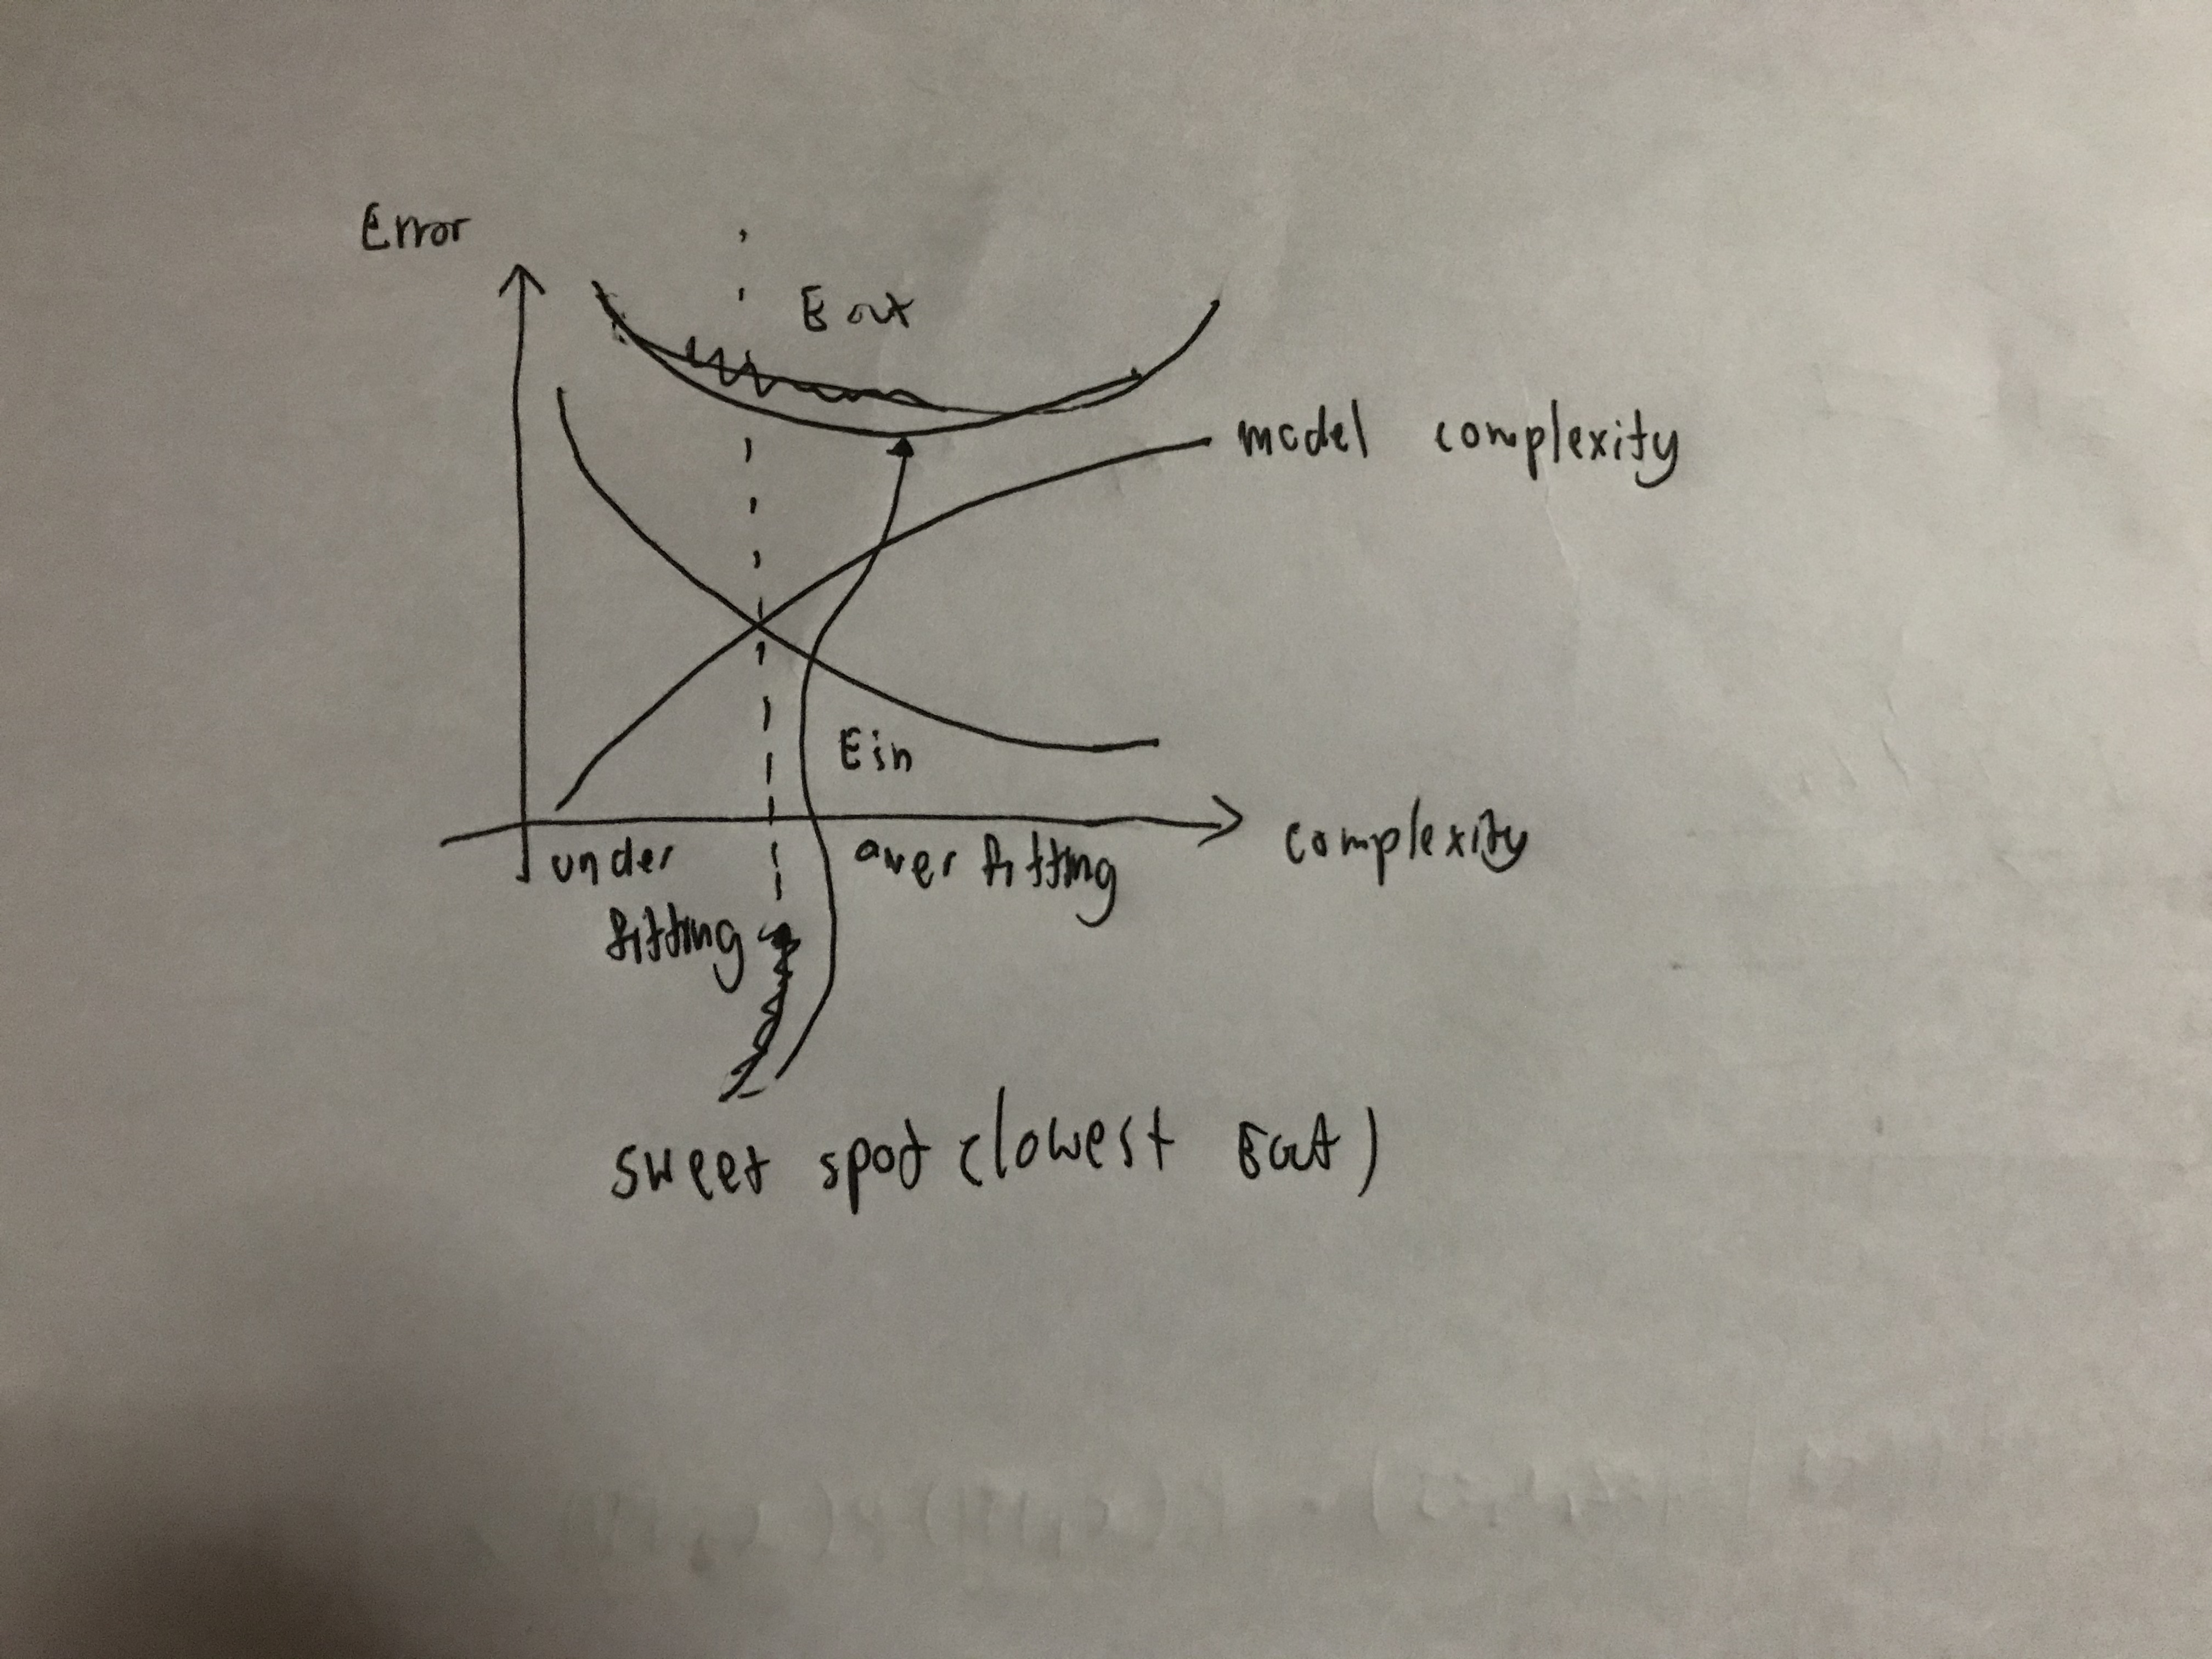 Error
Eout
model complexity
Ein
complexity
under
fitting
over fitting
sweet spot (lowest Eout)